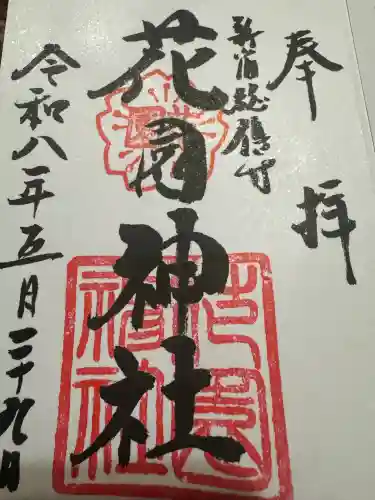 奉拝
新宿総鎮守
花園神社
令和八年五月二十九日
花園神社